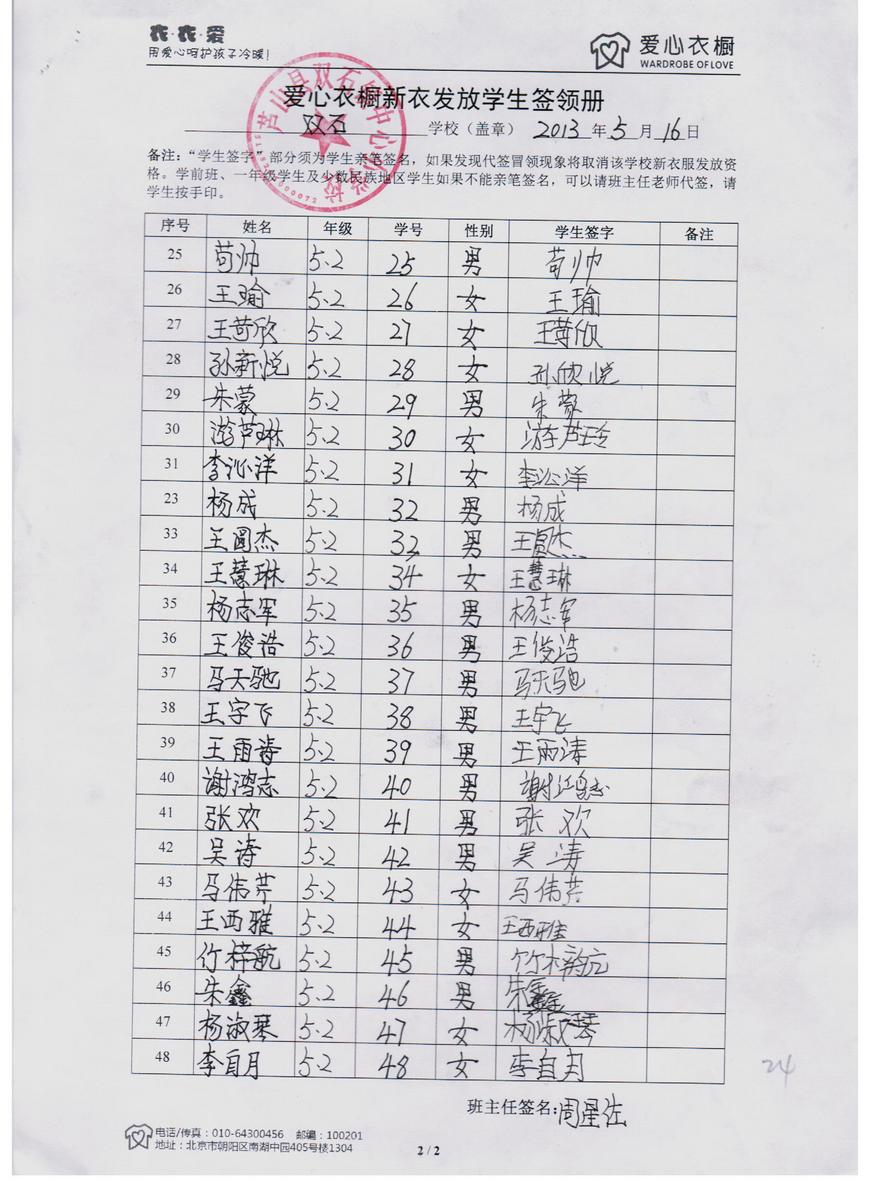 衣·衣·爱
用爱心呵护孩子冷暖!
爱心衣橱
WARDROBE OF LOVE
爱心衣橱新衣发放学生签领册
双石 学校（盖章） 2013 年 5 月 16 日
备注：“学生签字”部分须为学生亲笔签名，如果发现代签冒领现象将取消该学校新衣服发放资
格。学前班、一年级学生及少数民族地区学生如果不能亲笔签名，可以请班主任老师代签，请
学生按手印。
序号 姓名 年级 学号 性别 学生签字 备注
25 苟帅 5.2 25 男 苟帅
26 王瑜 5.2 26 女 王瑜
27 王苛欣 5.2 27 女
28 孙新悦 5.2 28 女 孙欣悦
29 朱蒙 5.2 29 男 朱蒙
30 游芦琳 5.2 30 女 游芦玲
31 李沁洋 5.2 31 女 李沁洋
23 杨成 5.2 32 男 杨成
33 王圆杰 5.2 32 男 王圆杰
34 王慧琳 5.2 34 女 王慧琳
35 杨志军 5.2 35 男 杨志军
36 王俊浩 5.2 36 男 王俊浩
37 马天驰 5.2 37 男 马天驰
38 王字飞 5.2 38 男 王宇飞
39 王雨涛 5.2 39 男 王雨涛
40 谢鸿志 5.2 40 男 谢鸿志
41 张欢 5.2 41 男 张欢
42 吴涛 5.2 42 男 吴涛
43 马伟芹 5.2 43 女 马伟芹
44 王西雅 5.2 44 女 王西雅
45 竹梓航 5.2 45 男 竹梓航
46 朱鑫 5.2 46 男 朱鑫
47 杨淑琴 5.2 47 女 杨淑琴
48 李自月 5.2 48 女 李自月
24
班主任签名:周星佐
电话/传真：010-64300456 邮编：100201
地址：北京市朝阳区南湖中园405号楼1304
2 / 2